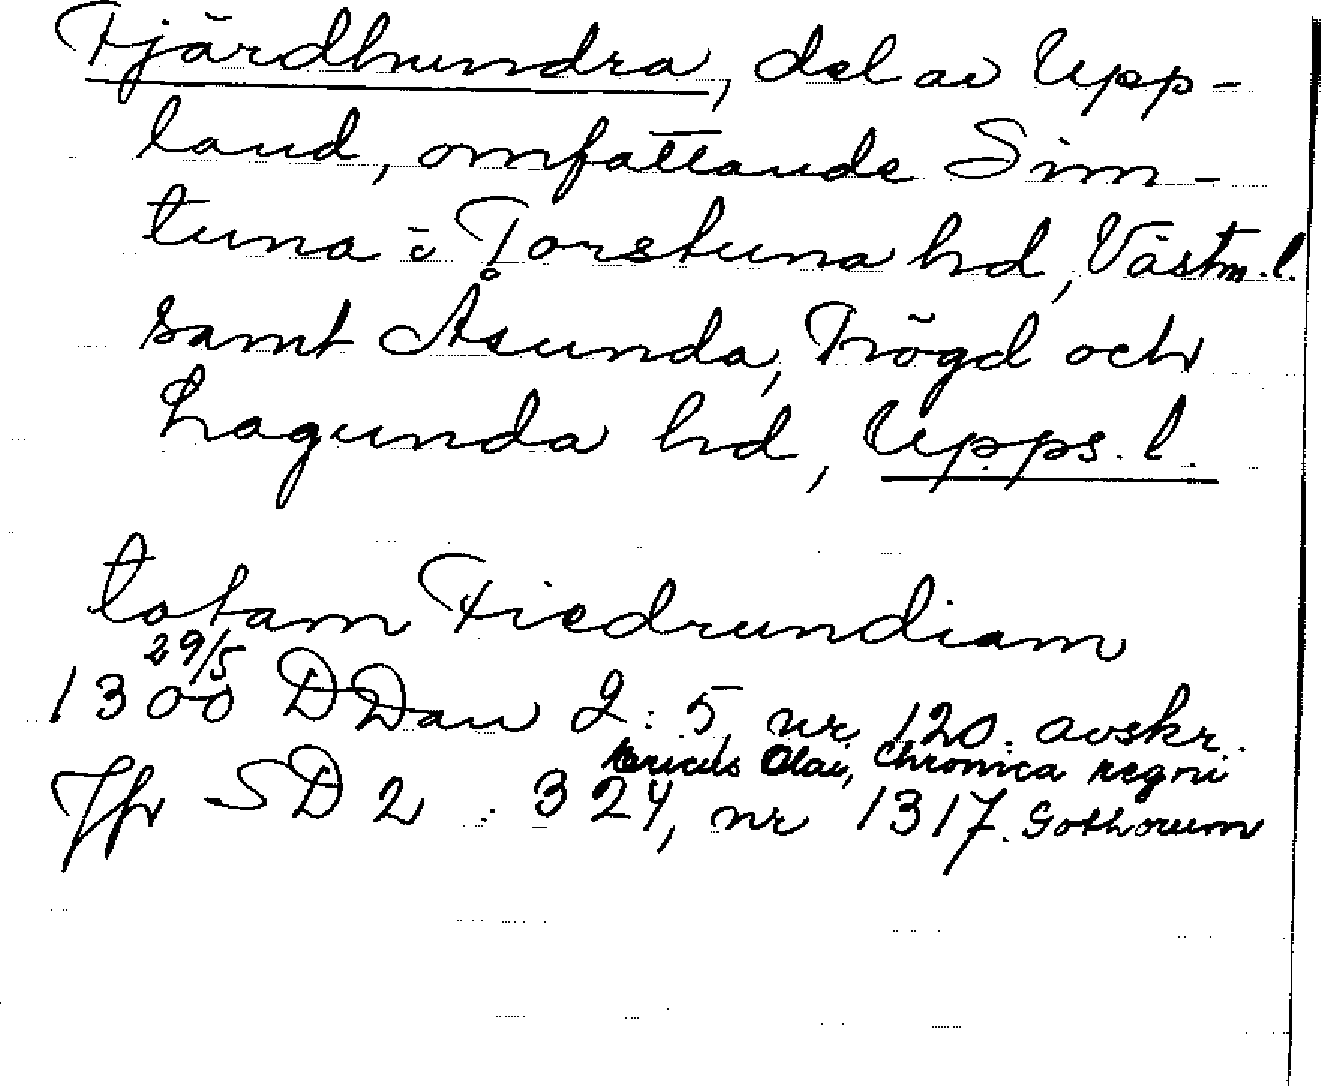 Fjärdhundra, del av Upp-
land, omfattande Sim-
tuna o Torstuna hd, Västm. l.
samt Åsunda, Trögd och
Lagunda hd, Upps. l.
totam Fiedrundiam
1300 29/5 DDan 2:5 nr 120. avskr.
Ericus Olai, Chronica regni
Jfr SD 2 : 324, nr 1317. Gothorum